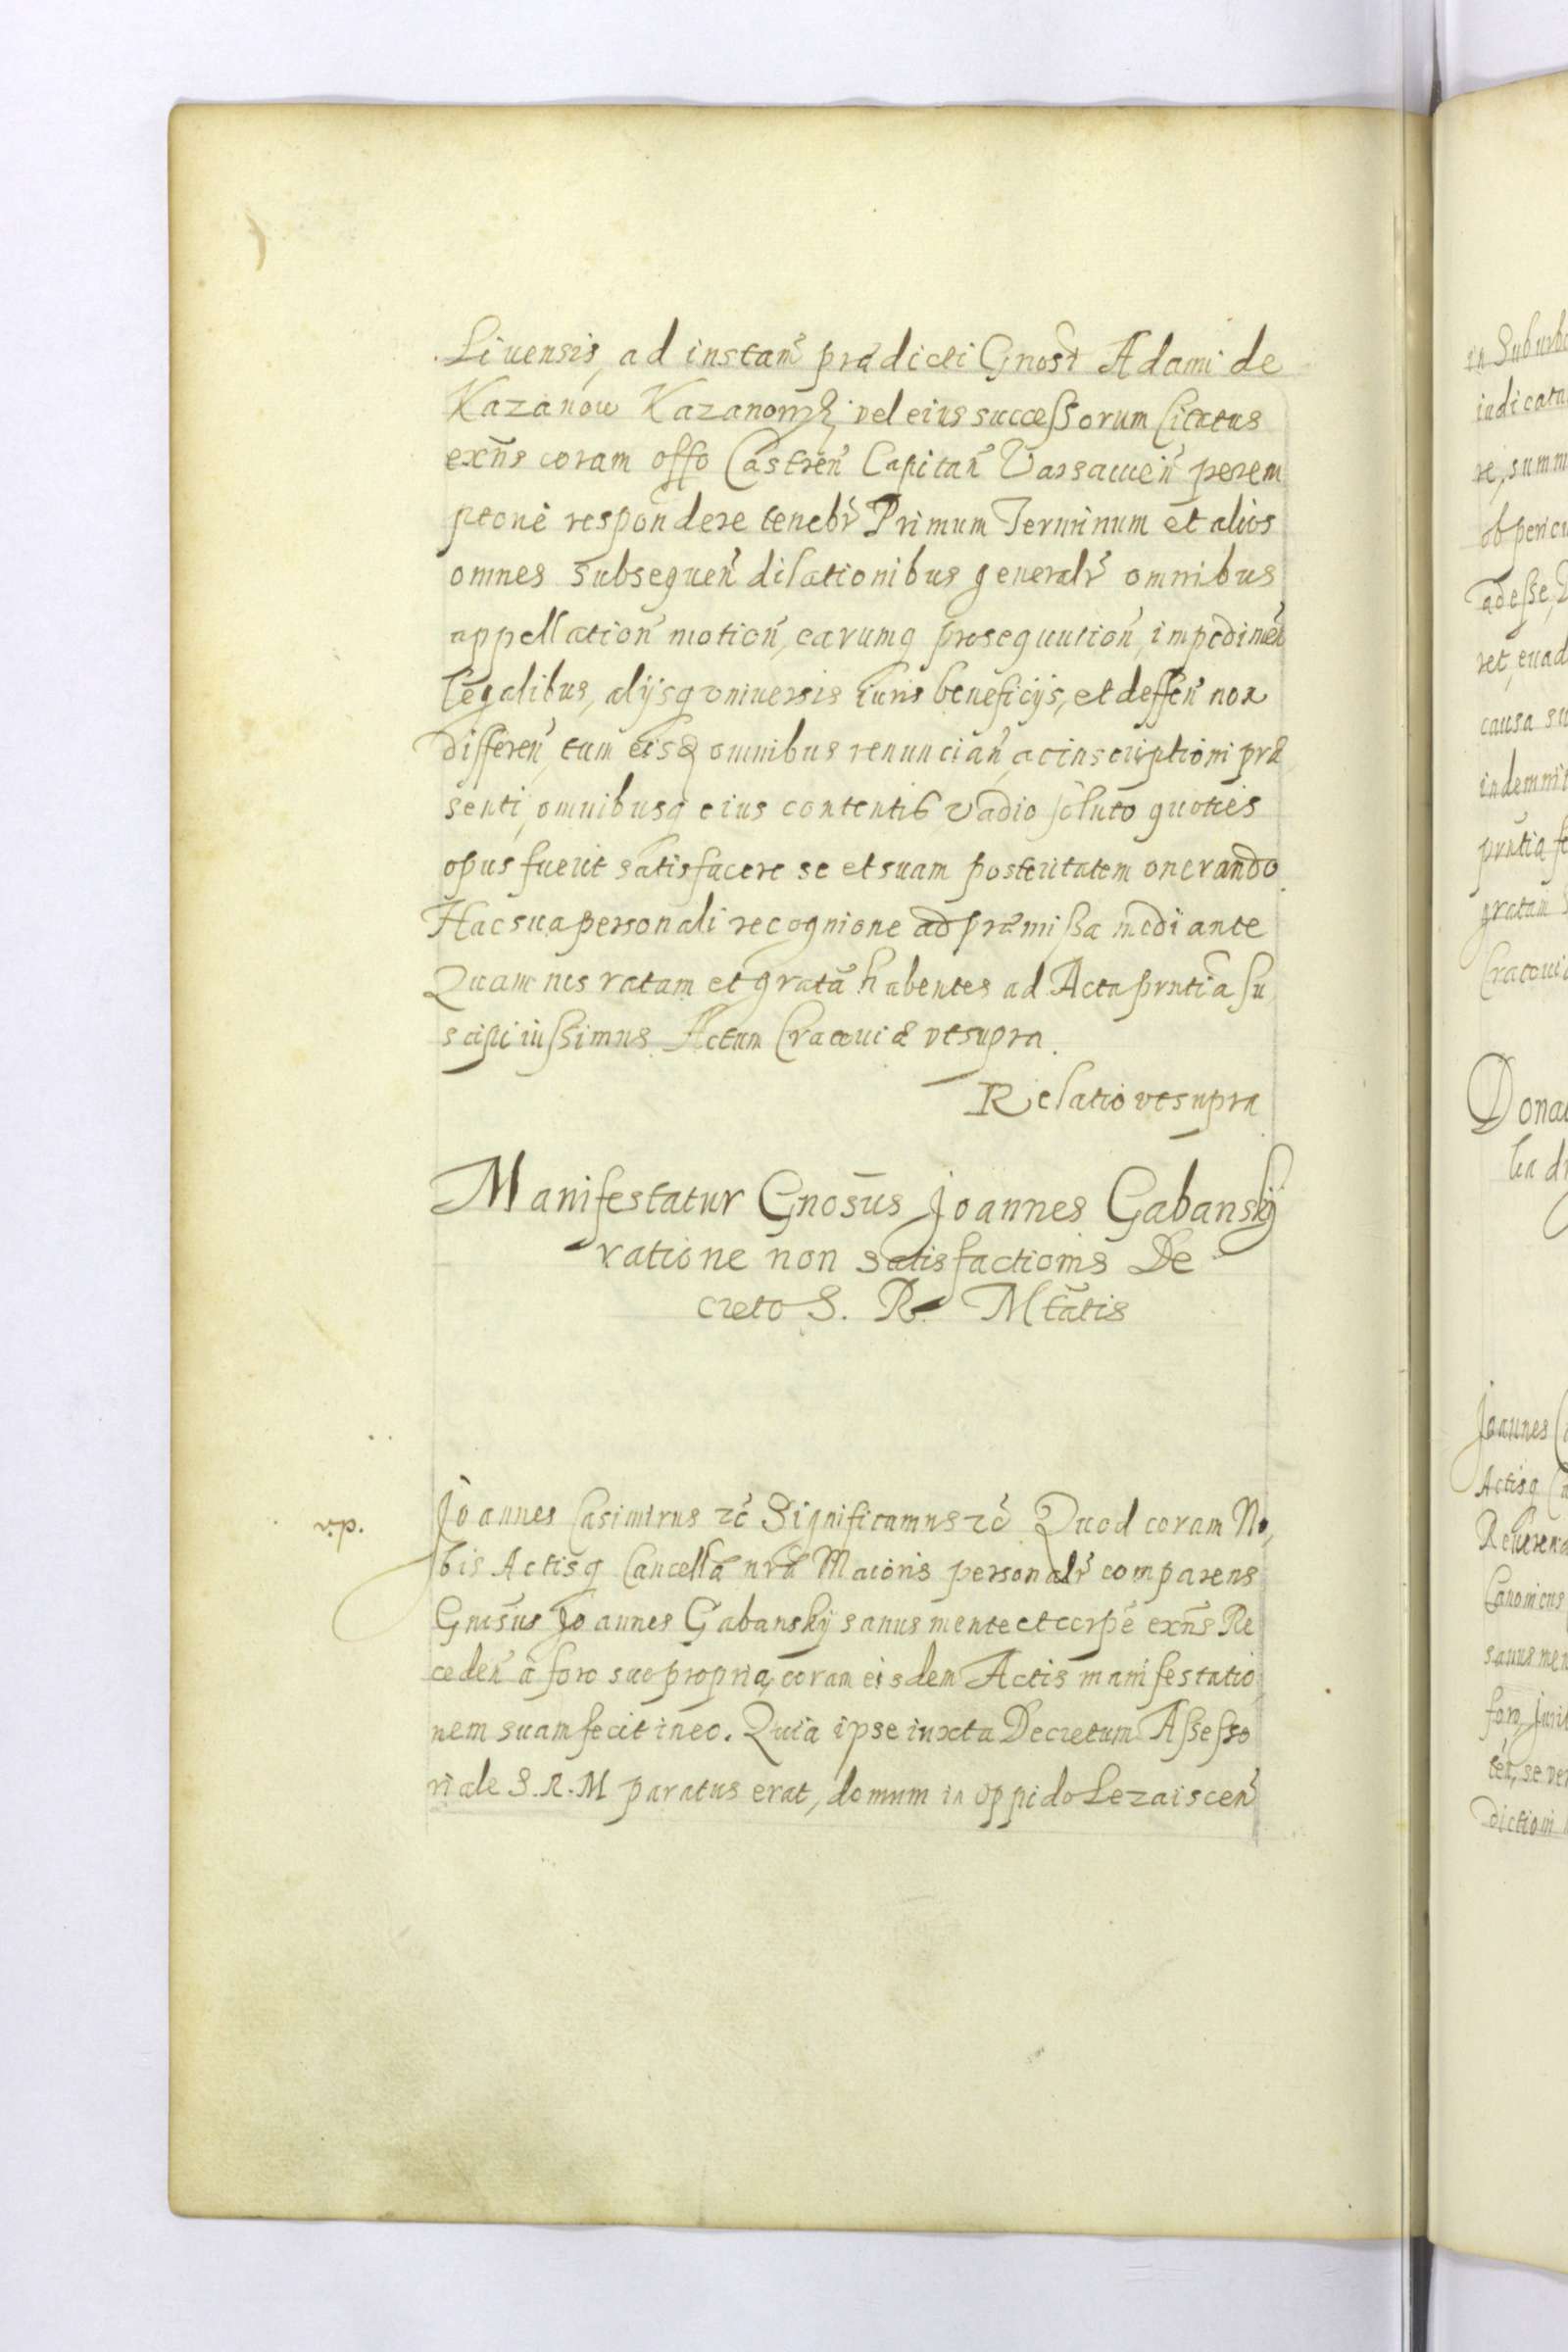 Liuensis, ad instan̄ prædicti Gnosi Adami de
Kazanow Kazanowskj vel eius successorum Citatus
exn̄s coram offo Castren̄ Capitan̄ Varsauien̄ perem
ptorie respondere tenebr̄ Primum Terminum et alios
omnes subsequen̄ dilationibus generalr̄ omnibus
appellation̄ motion̄, earumq prosequution̄, impedimen̄
legalibus, alijsq vniuersis iuris beneficijs, et deffen̄ non
differen̄, tum eisq omnibus renuncian̄, ac inscriptioni præ
senti, omnibusq eius contentis, vadio soluto quoties
opus fuerit satisfacere se et suam posteritatem onerando.
Hac sua personali recognione ad præmissa mediante
Quam nos ratam et gratā habentes ad Acta prntia su
scipi iussimus. Actum Cracouiæ vt supra.
Relatio vt supra
Manifestatur Gnosūs Joannes Gabanskÿ
ratione non satisfactionis De
creto S. R. Mtātis
Joannes Casimirus etc̄ Significamus etc̄ Quod coram No,
bis Actisq Cancellæ nræ Maioris personalr̄ comparens
Gnosūs Joannes Gabanskÿ sanus mente et corpē exn̄s Re
ceden̄ à foro suo proprio, coram eisdem Actis manifestatio
nem suam fecit in eo. Quia ipse iuxta Decretum Assesso
riale S. R. M paratus erat, domum in oppido Lezaiscen̄